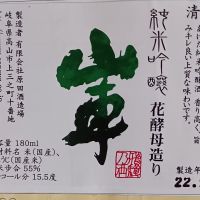 清
純米吟醸
花酵母造り
山車
製造者 有限会社原田酒造場
岐阜県高山市上三之町十番地
容量 180ml
材料名 米(国産)、
(国産米)
歩合 55%
コール分 15.5度
製造年
22.